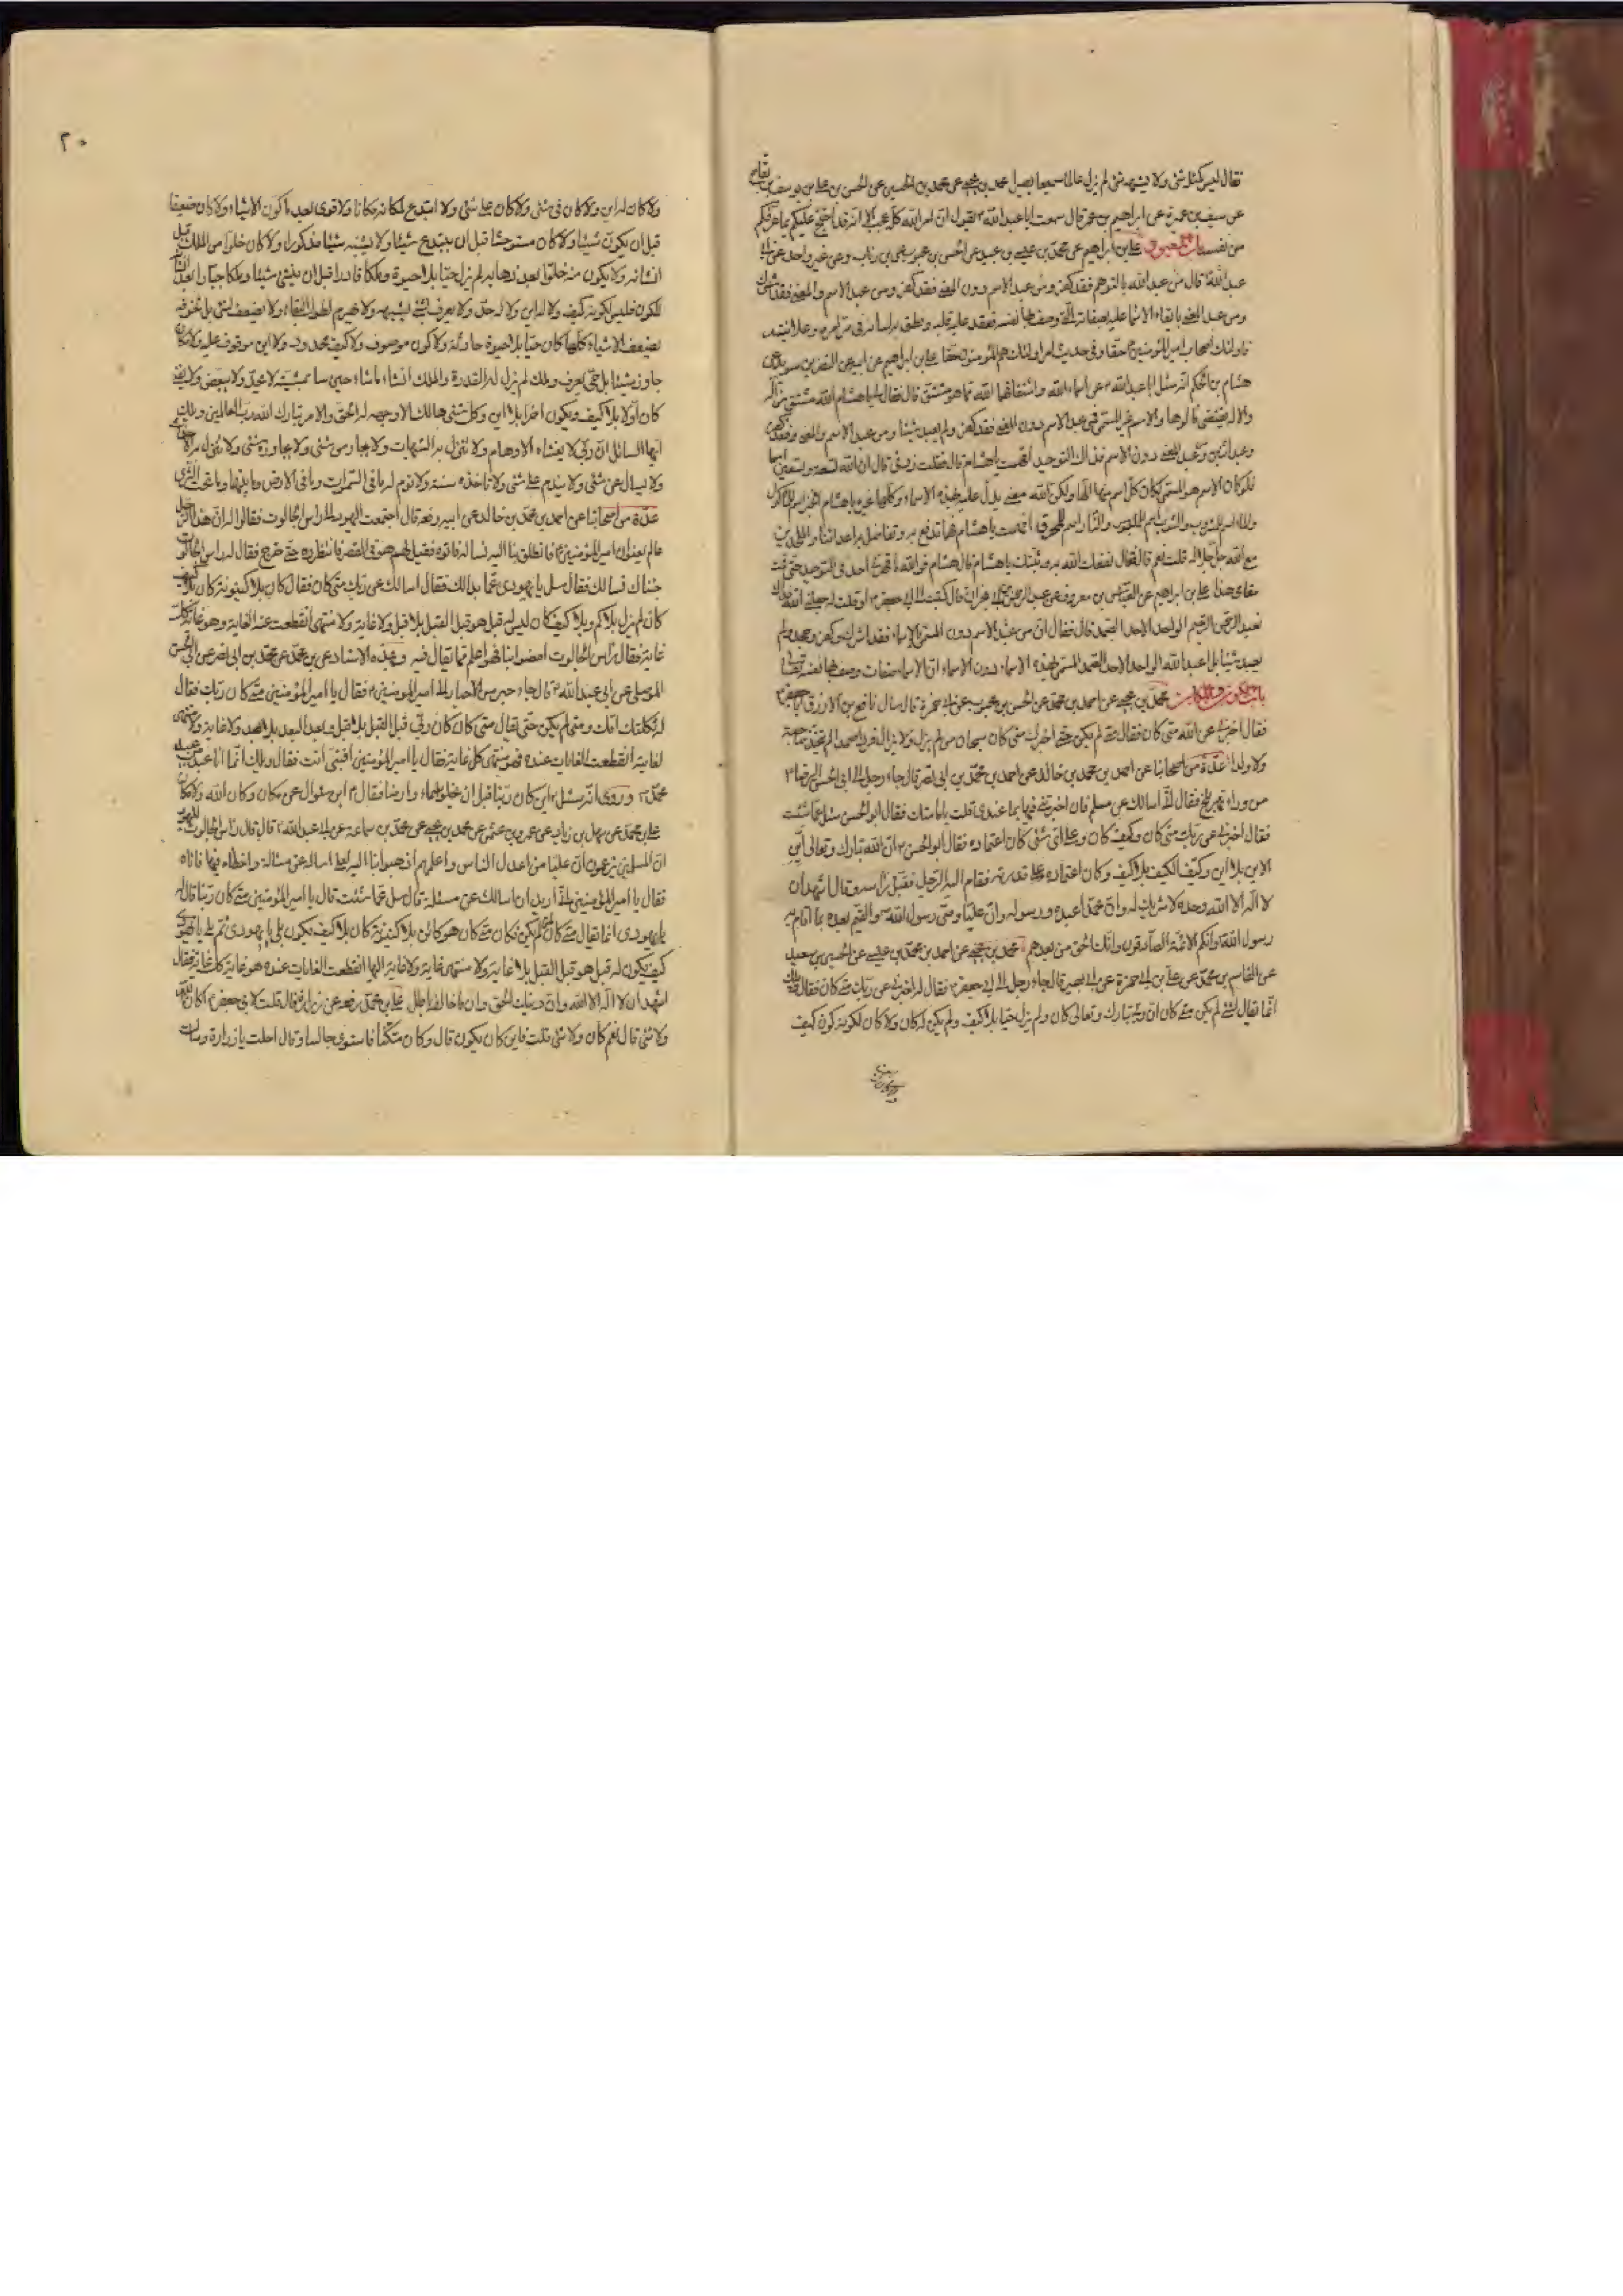 فقال ليس كمثله شئ ولا يشبهه شئ لم يزل عالما سميعا بصيرا محمد بن يحيى عن محمد بن الحسين عن الحسن بن علي بن يوسف بن بقاح
عن سيف بن عميرة عن ابراهيم بن عمر قال سمعت ابا عبد الله ع يقول ان امر الله كله عجيب الا انه قد احتج عليكم بما عرفكم
من نفسه باب المعبود علي بن ابراهيم عن محمد بن عيسى بن عبيد عن الحسن بن محبوب عن بن رئاب وعن غير واحد عن ابي
عبد الله ع قال من عبد الله بالتوهم فقد كفر ومن عبد الاسم دون المعنى فقد كفر ومن عبد الاسم والمعنى فقد اشرك
ومن عبد المعنى بايقاع الاسماء عليه بصفاته التي وصف بها نفسه فعقد عليه قلبه ونطق به لسانه في سرايره وعلانيته
فاولئك اصحاب امير المؤمنين ع حقا وفي حديث اخر اولئك هم المؤمنون حقا علي بن ابراهيم عن ابيه عن النضر بن سويد عن
هشام بن الحكم انه سئل ابا عبد الله ع عن اسماء الله واشتقاقها الله مما هو مشتق قال فقال لي يا هشام الله مشتق من اله
والاله يقتضي مالوها والاسم غير المسمى فمن عبد الاسم دون المعنى فقد كفر ولم يعبد شيئا ومن عبد الاسم والمعنى فقد كفر
وعبد اثنين ومن عبد المعنى دون الاسم فذاك التوحيد افهمت يا هشام قال فقلت زدني قال ان الله تسعة وتسعين اسما
فلو كان الاسم هو المسمى لكان كل اسم منها الها ولكن الله معنى يدل عليه بهذه الاسماء وكلها غيره يا هشام الخبز اسم للماكول
والماء اسم للمشروب والثوب اسم للملبوس والنار اسم للمحرق افهمت يا هشام فهما تدفع به وتناضل به اعدائنا والملحدين
مع الله جل جلاله قلت نعم قال فقال نفعك الله به وثبتك يا هشام قال هشام فوالله ما قهرني احد في التوحيد حتى قمت
مقامي هذا علي بن ابراهيم عن العباس بن معروف عن عبد الرحمن بن ابي نجران قال كتبت الى ابي جعفر ع او قلت له جعلني الله فداك
نعبد الرحمن الرحيم الواحد الاحد الصمد قال فقال ان من عبد الاسم دون المسمى بالاسماء فقد اشرك وكفر وجحد ولم
يعبد شيئا بل اعبد الله الواحد الاحد الصمد المسمى بهذه الاسماء دون الاسماء ان الاسماء صفات وصف بها نفسه تعالى
باب الكون والمكان محمد بن يحيى عن احمد بن محمد عن الحسن بن محبوب عن ابي حمزة قال سال نافع بن الازرق ابا جعفر ع
فقال اخبرني عن الله متى كان فقال متى لم يكن حتى اخبرك متى كان سبحان من لم يزل ولا يزال فردا صمدا لم يتخذ صاحبة
ولا ولدا عدة من اصحابنا عن احمد بن محمد بن خالد عن احمد بن محمد بن ابي نصر قال جاء رجل الى ابي الحسن الرضا ع
من وراء نهر بلخ فقال اني اسالك عن مسلة فان اخبرتني فيها بما عندي قلت بامامتك فقال ابو الحسن سل عما شئت
فقال اخبرني عن ربك متى كان وكيف كان وعلى اي شئ كان اعتماده فقال ابو الحسن ع ان الله تبارك وتعالى اين
الاين بلا اين وكيف الكيف بلا كيف وكان اعتماده على قدرته فقام اليه الرجل فقبل راسه وقال اشهد ان
لا اله الا الله وحده لا شريك له وان محمدا عبده ورسوله وان عليا وصي رسول الله والقيم بعده بما اقام به
رسول الله وانكم الائمة الصادقون وانك الخلف من بعدهم محمد بن يحيى عن احمد بن محمد بن عيسى عن الحسين بن سعيد
عن القاسم بن محمد عن علي بن ابي حمزة عن ابي بصير قال جاء رجل الى ابي جعفر ع فقال له اخبرني عن ربك متى كان فقال ويلك
انما يقال لشئ لم يكن متى كان ان ربي تبارك وتعالى كان ولم يزل حيا بلا كيف ولم يكن له كان ولا كان لكونه كون كيف
٢٠
ولا كان له اين ولا كان في شئ ولا كان على شئ ولا ابتدع لمكانه مكانا ولا قوي بعد ما كون الاشياء ولا كان ضعيفا
قبل ان يكون شيئا ولا كان مستوحشا قبل ان يبتدع شيئا ولا يشبه شيئا مذكورا ولا كان خلوا من الملك قبل
انشائه ولا يكون منه خلوا بعد ذهابه لم يزل حيا بلا حيوة وملكا قادرا قبل ان ينشئ شيئا وملكا جبارا بعد انشائه
للكون فليس لكونه كيف ولا له اين ولا له حد ولا يعرف بشئ يشبهه ولا يهرم لطول البقاء ولا يصعق لشئ بل لخوفه
يصعق الاشياء كلها كان حيا بلا حيوة حادثة ولا كون موصوف ولا كيف محدود ولا اين موقوف عليه ولا مكان
جاور شيئا بل حي يعرف وملك لم يزل له القدرة والملك انشاء ما شاء حين شاء بمشيته لا يحد ولا يبعض ولا يفنى
كان اولا بلا كيف ويكون اخرا بلا اين وكل شئ هالك الا وجهه له الخلق والامر تبارك الله رب العالمين ويلك
ايها السائل ان ربي لا يغشاه الاوهام ولا تنزل به الشبهات ولا يحار من شئ ولا يجاوزه شئ ولا تنزل به الاحداث
ولا يسال عن شئ ولا يندم على شئ ولا تاخذه سنة ولا نوم له ما في السموات وما في الارض وما بينهما وما تحت الثرى
عدة من اصحابنا عن احمد بن محمد بن خالد عن ابيه رفعه قال اجتمعت اليهود الى راس الجالوت فقالوا له ان هذا الرجل
عالم يعنون امير المؤمنين ع فانطلق بنا اليه نساله فاتوه فقيل لهم هو في القصر فانتظروه حتى خرج فقال له راس الجالوت
جئناك نسالك فقال سل يا يهودي عما بدا لك فقال اسالك عن ربك متى كان فقال كان بلا كينونية كان بلا كيف
كان لم يزل بلا كم وبلا كيف كان ليس له قبل هو قبل القبل بلا قبل ولا غاية ولا منتهى انقطعت عنه الغاية وهو غاية كل
غاية فقال راس الجالوت امضوا بنا فهو اعلم مما يقال فيه وبهذا الاسناد عن احمد بن محمد بن ابي نصر عن ابي الحسن
الموصلي عن ابي عبد الله ع قال جاء حبر من الاحبار الى امير المؤمنين ع فقال يا امير المؤمنين متى كان ربك فقال
له ثكلتك امك ومتى لم يكن حتى يقال متى كان كان ربي قبل القبل بلا قبل وبعد البعد بلا بعد ولا غاية ولا منتهى
لغايته انقطعت الغايات عنده فهو منتهى كل غاية فقال يا امير المؤمنين افنبي انت فقال ويلك انما انا عبد من عبيد
محمد ص وروى انه سئل ع اين كان ربنا قبل ان يخلق سماء وارضا فقال ع اين سؤال عن مكان وكان الله ولا مكان
علي بن محمد عن سهل بن زياد عن عمرو بن عثمان عن محمد بن يحيى عن محمد بن سماعة عن ابي عبد الله ع قال قال راس الجالوت لليهود
ان المسلمين يزعمون ان عليا من اجدل الناس واعلمهم اذهبوا بنا اليه لعلي اساله عن مسئلة واخطاه فيها فاتاه
فقال يا امير المؤمنين اني اريد ان اسالك عن مسئلة قال سل عما شئت قال يا امير المؤمنين متى كان ربنا قال له
يا يهودي انما يقال متى كان لمن لم يكن فكان متى كان هو كائن بلا كينونية كائن كان بلا كيف يكون بلى يا يهودي ثم بلى يا يهودي
كيف يكون له قبل هو قبل القبل بلا غاية ولا منتهى غاية ولا غاية اليها انقطعت الغايات عنده هو غاية كل غاية فقال
اشهد ان لا اله الا الله وان دينك الحق وان ما خالفه باطل علي بن محمد رفعه عن زرارة قال قلت لابي جعفر ع اكان الله
ولا شئ قال نعم كان ولا شئ قلت فاين كان يكون قال وكان متكئا فاستوى جالسا وقال احلت يا زرارة وسالت